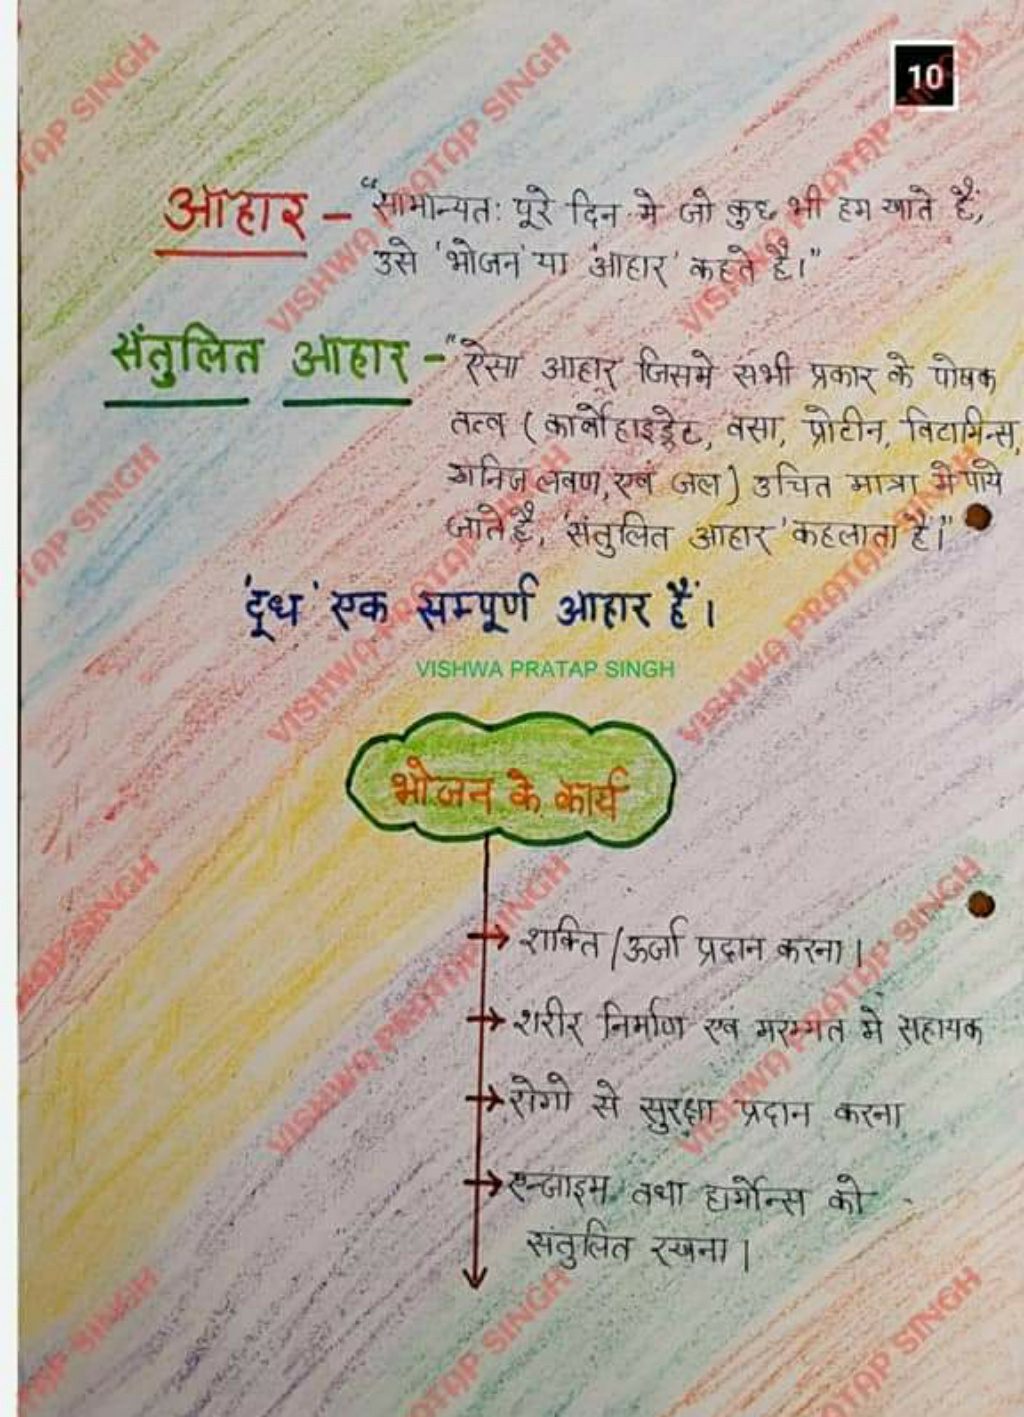 10
आहार – “सामान्यत: पूरे दिन मे जो कुछ भी हम खाते हैं,
उसे 'भोजन' या 'आहार' कहते है।”
संतुलित आहार – “ऐसा आहार जिसमे सभी प्रकार के पोषक
तत्व (कार्बोहाइड्रेट, वसा, प्रोटीन, विटामिन्स,
खनिज लवण, एवं जल) उचित मात्रा मे पाये
जाते है, 'संतुलित आहार' कहलाता है।”
'दूध' एक सम्पूर्ण आहार हैं।
VISHWA PRATAP SINGH
भोजन के कार्य
→ शक्ति / ऊर्जा प्रदान करना।
→ शरीर निर्माण एवं मरम्मत मे सहायक
→ रोगो से सुरक्षा प्रदान करना
→ एन्जाइम तथा हार्मोन्स को
संतुलित रखना।